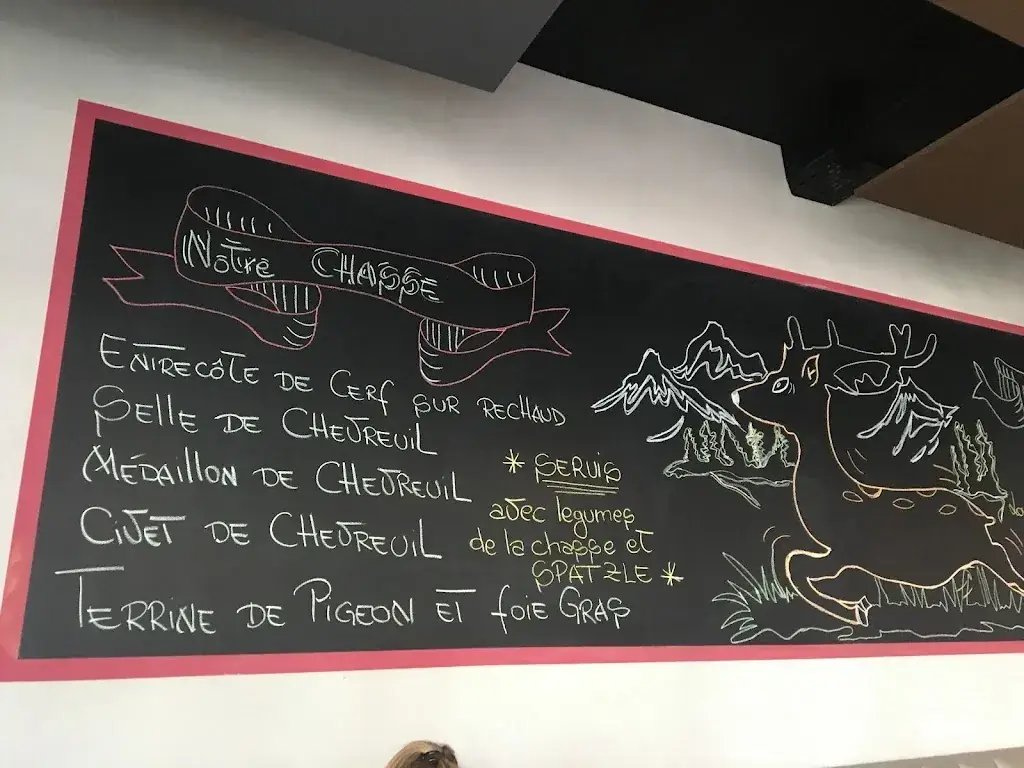 Nôtre CHASSE
ENTRECÔTE DE CERF SUR RECHAUD
SELLE DE CHEVREUIL
MÉDAILLON DE CHEVREUIL
CIVET DE CHEVREUIL
* SERVIS
avec legumes
de la chasse et
SPATZLE *
TERRINE DE PIGEON ET foie GRAS